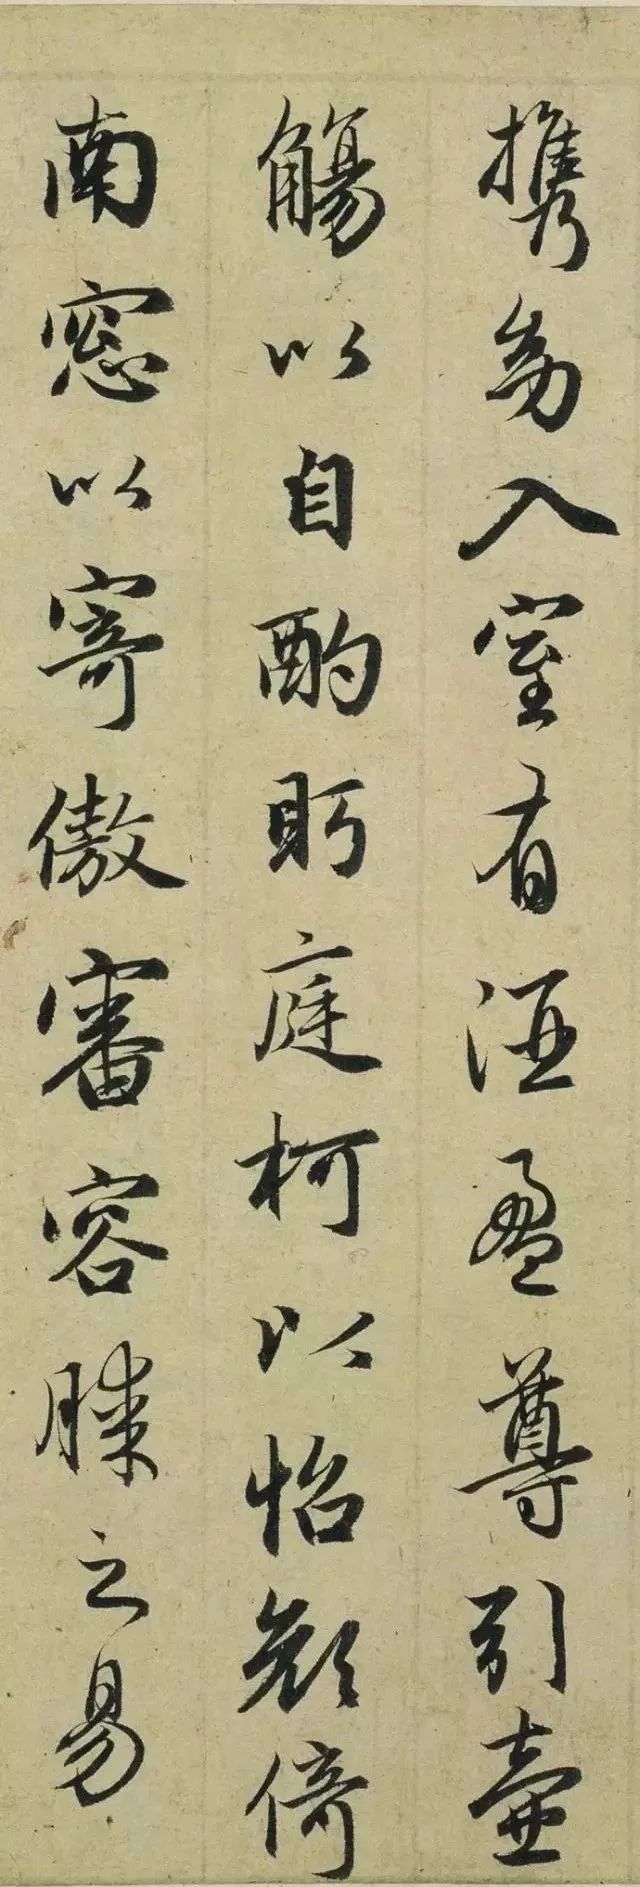 携幼入室有酒盈尊引壷
觴以自酌眄庭柯以怡顔倚
南窓以寄傲審容膝之易